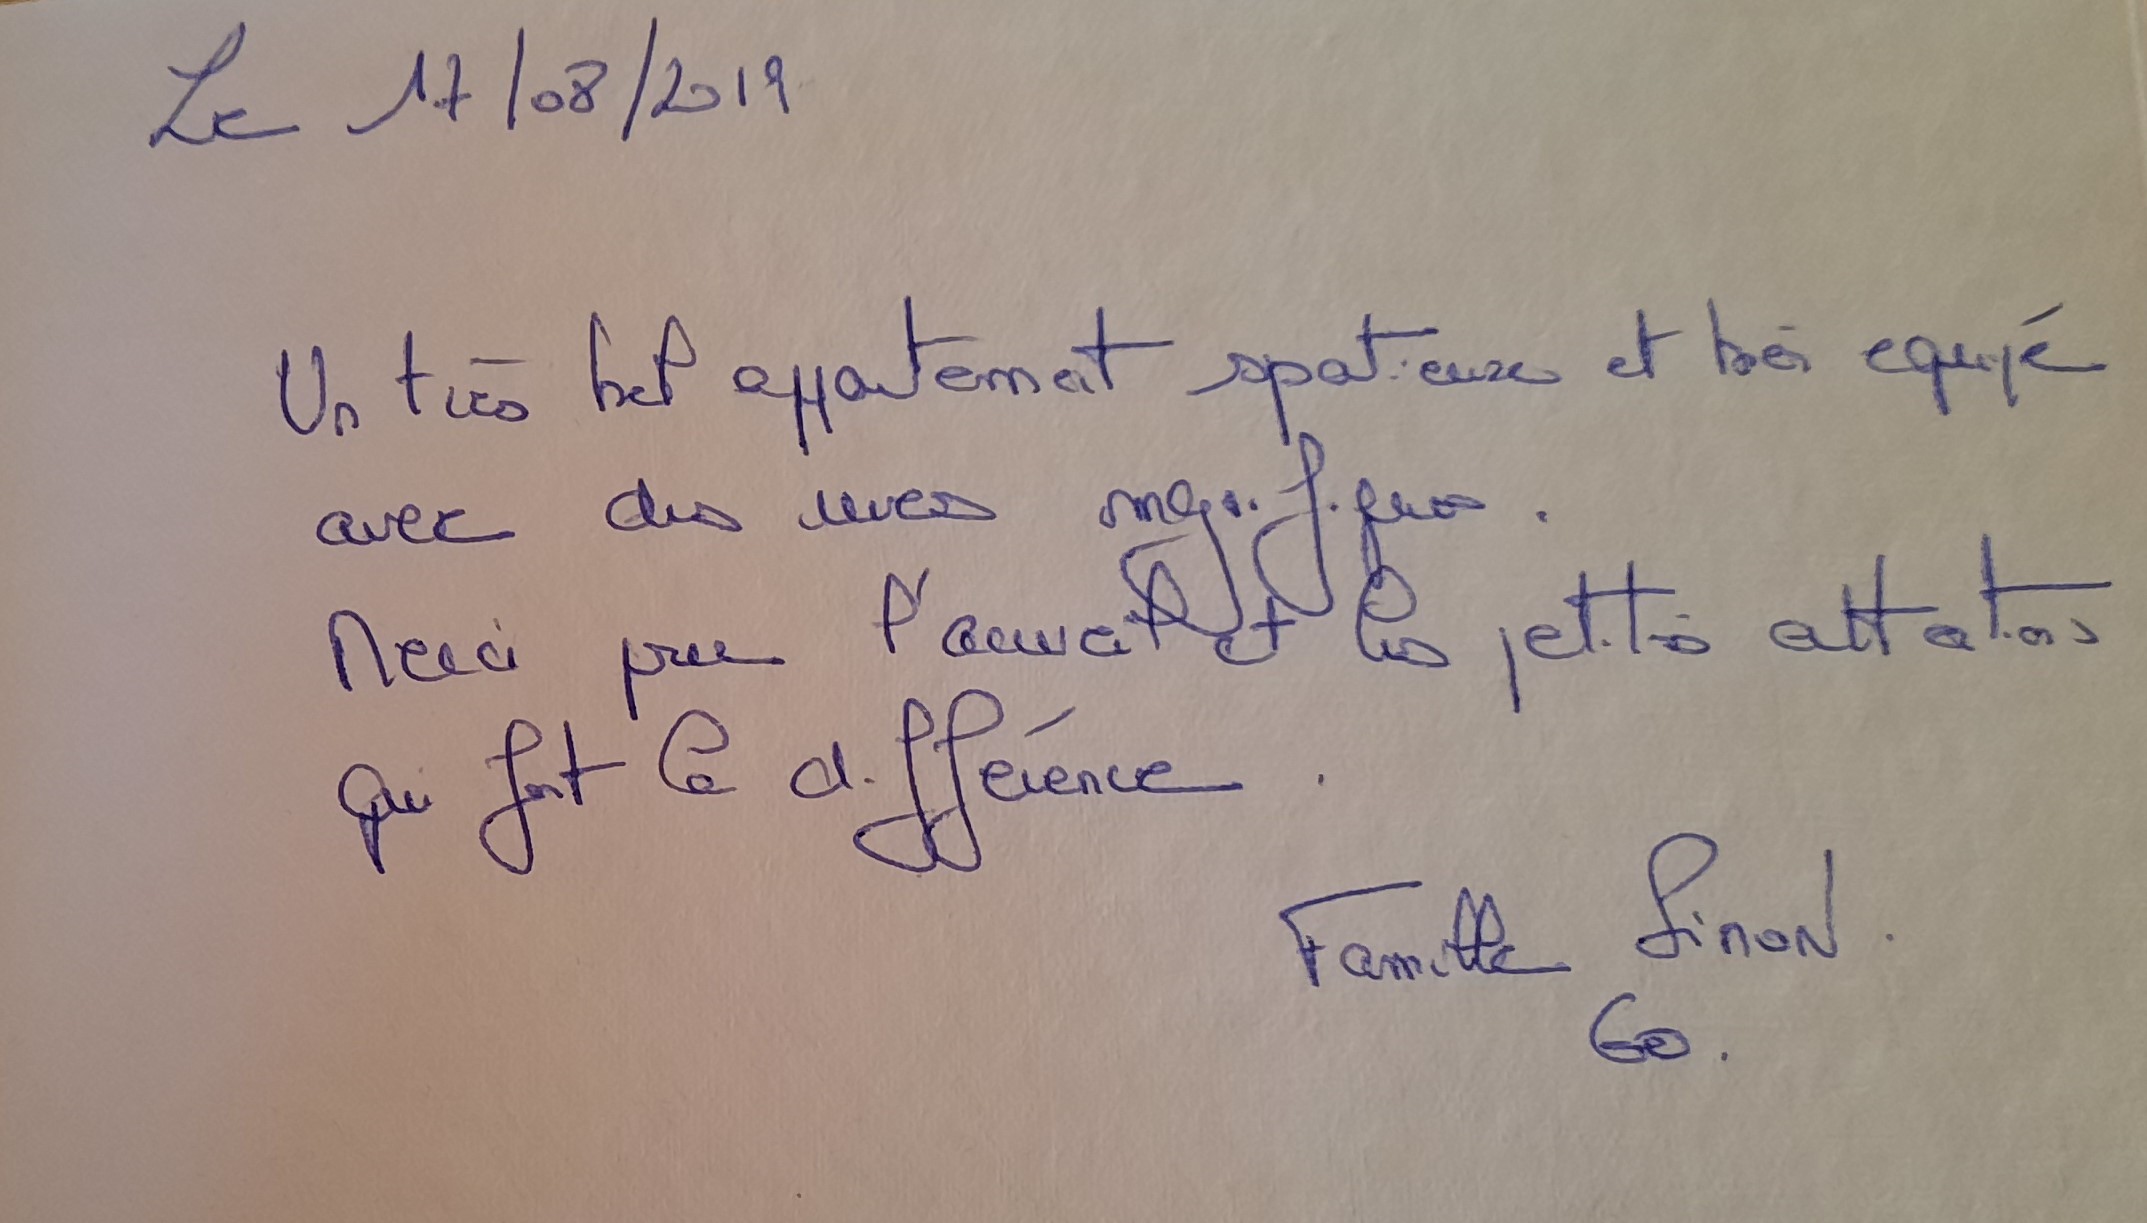 Le 17/08/2019
Un très bel appartement spatieuse et bien equipé
avec des vues magnifiques.
Merci pour l'accueil et les petites attentions
qui font la différence.
Famille Simon.
60.